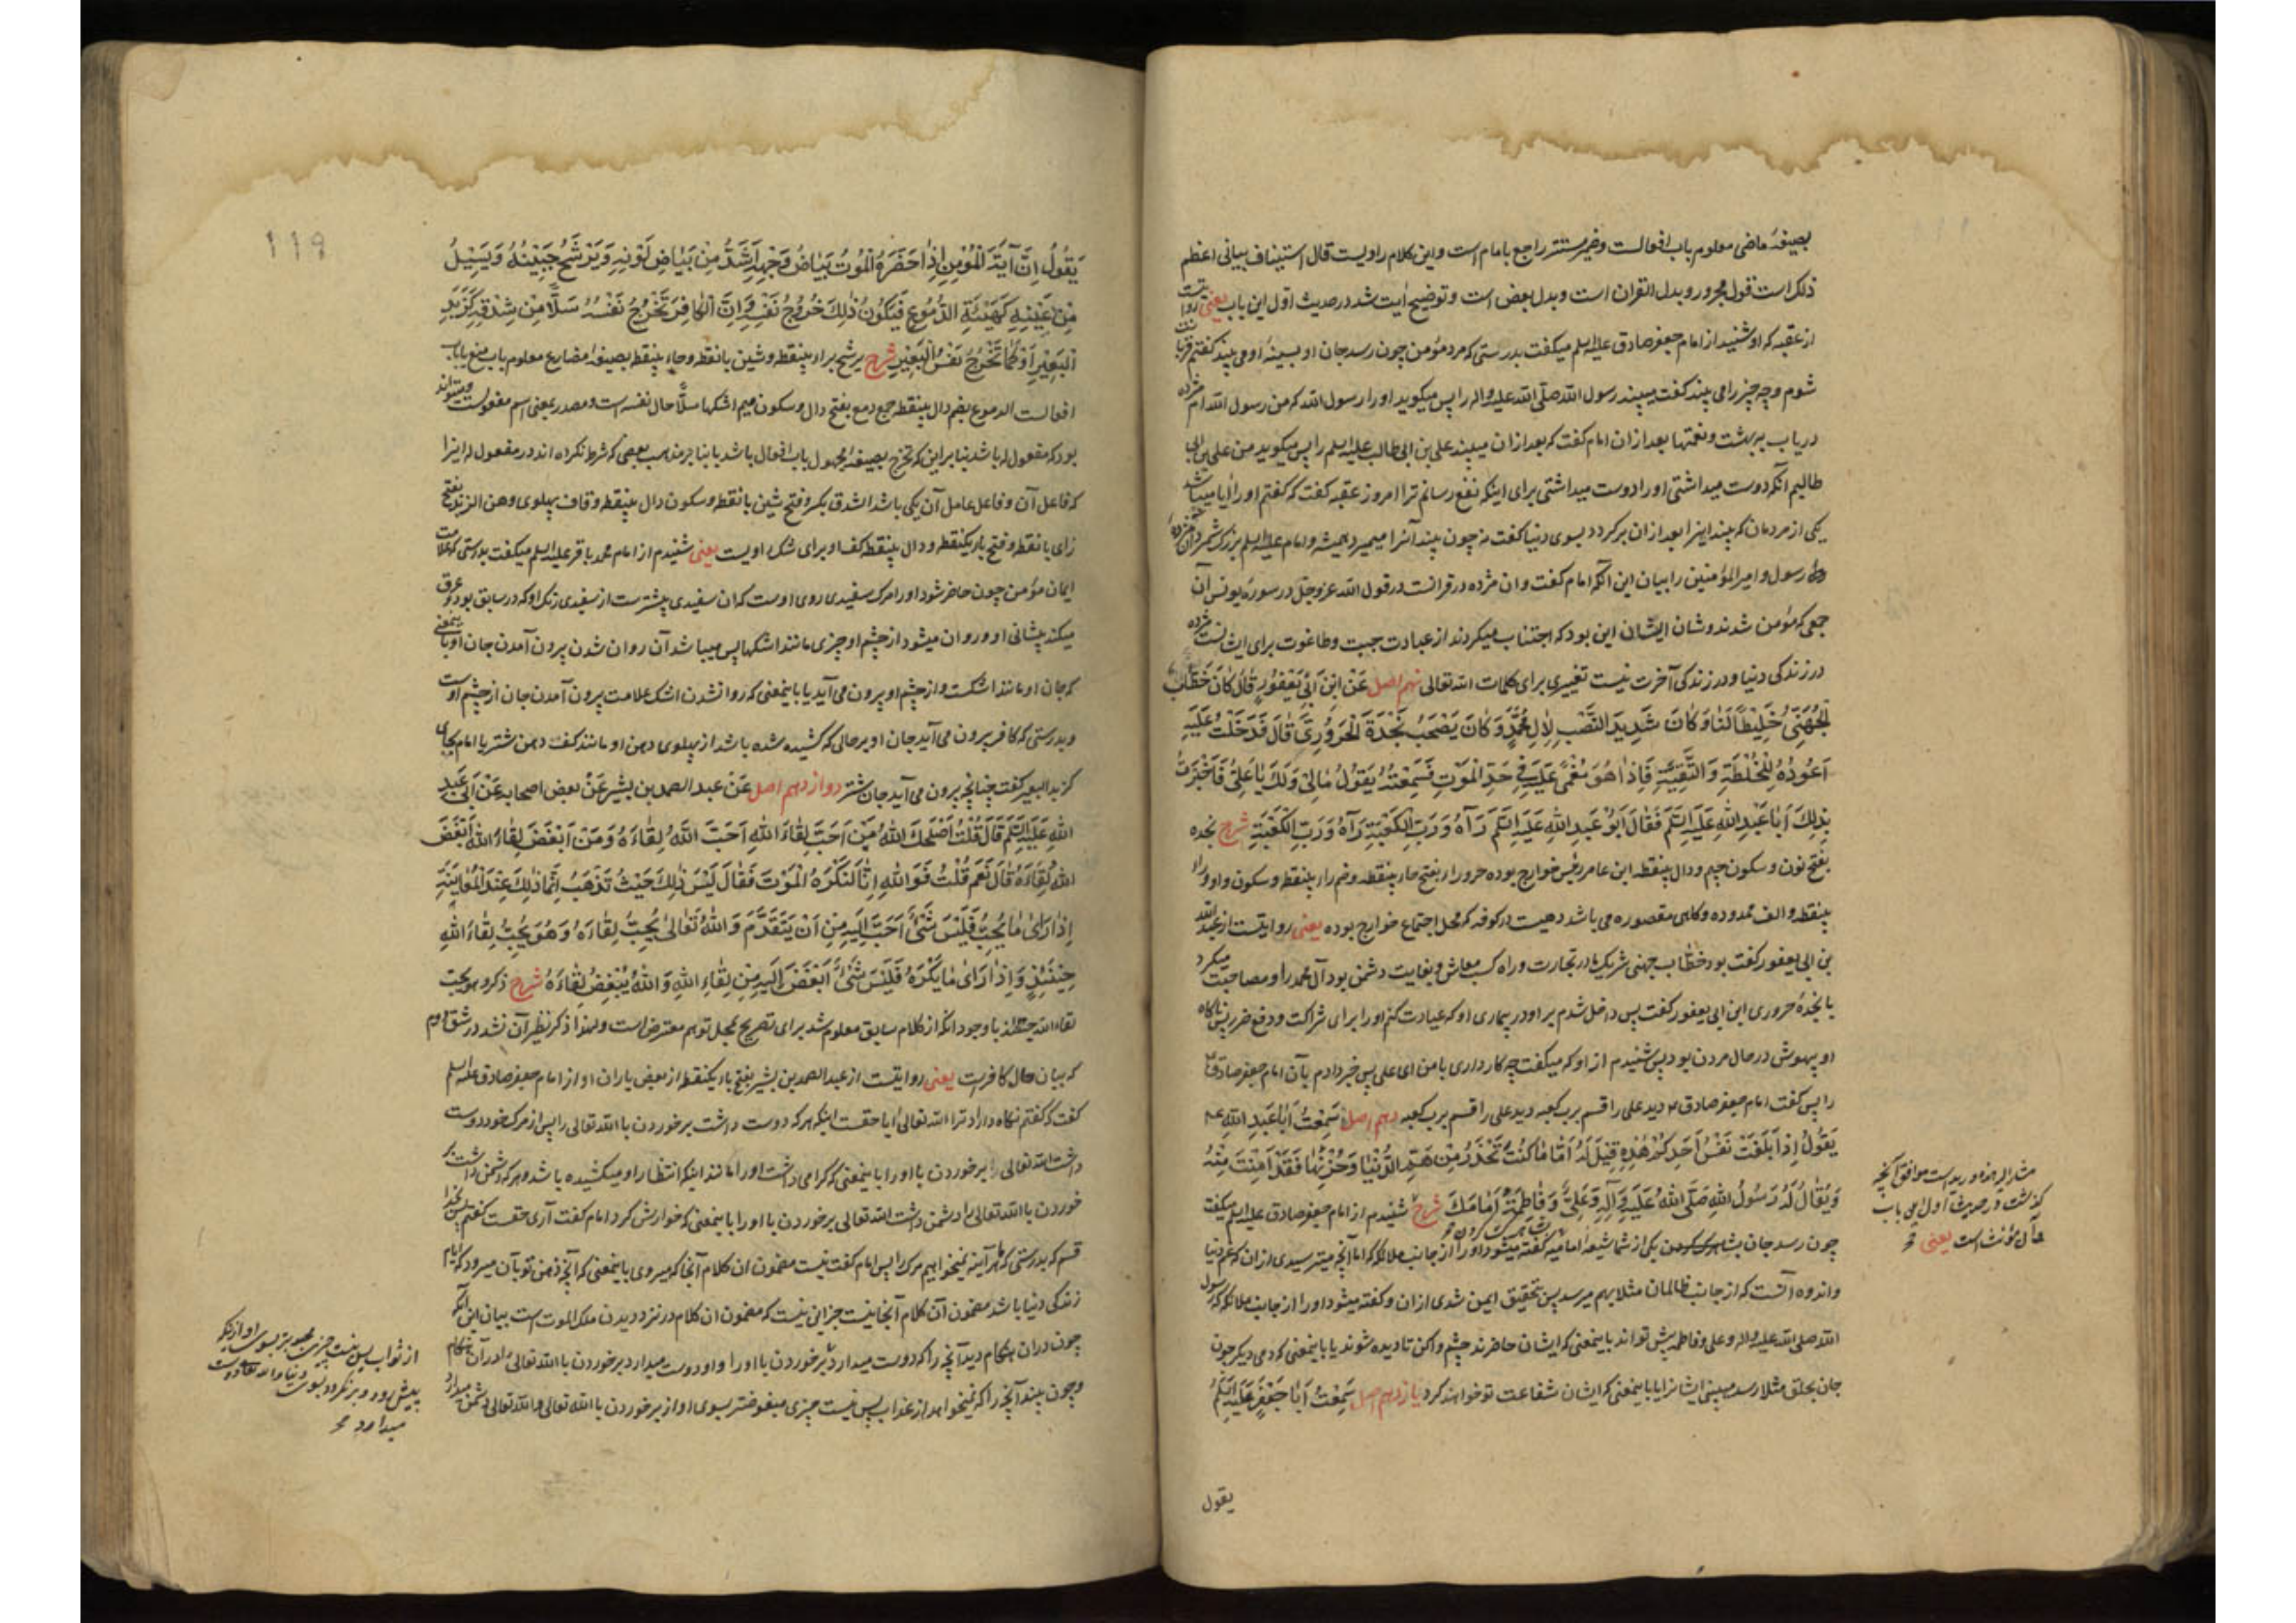 بصیغهٔ ماضی معلوم باب افعالست و ضمیر مستتر راجع بامام است و این کلام راویست قال استیناف بیانی اعظم
ذلک است قول مجرور و بدل القران است و بدل بعض است و توضیح ایت شد در حدیث اول این باب یعنی روایتست
از عقبه که او شنید از امام جعفر صادق علیه السلم میکفت بدرستی که مرد مؤمن چون رسد جان او بسینهٔ او می بیند کفتم قربانت
شوم و چه چیز را می بیند کفت میبیند رسول الله صلی الله علیه واله را پس میکوید او را رسول الله که من رسول الله ام مژده
دریاب به بهشت و نعمتها بعد از ان امام کفت که بعد از ان میبیند علی بن ابی طالب علیه السلم را پس میکوید من علی بن ابی
طالبم آنکه دوست میداشتی او را دوست میداشتی برای اینکه نفع رسانم ترا امروز عقبه کفت که کفتم او را ایا میباشد
یکی از مردمان که بیند اینرا بعد از ان برکردد بسوی دنیا کفت نه چون بیند آنرا میمیرد همیشه و امام علیه السلم بزرک شمرد آن مژدهٔ
رسول و امیر المؤمنین را بیان این آنکه امام کفت و ان مژده در قرانست در قول الله عز و جل در سورهٔ یونس آن
جمعی که مؤمن شدند و شان ایشان این بود که اجتناب میکردند از عبادت جبت و طاغوت برای ایشانست مژده
در زندکی دنیا و در زندکی آخرت نیست تغییری برای کلمات الله تعالی نهم اصل عَنِ ابْنِ اَبی یَعْفُورٍ قَالَ کَانَ خَطَّابُ
الْجُهَنِیُّ خَلِیطاً لَنَا وَ کَانَ شَدِیدَ النَّصْبِ لِاٰلِ مُحَمَّدٍ وَ کَانَ یَصْحَبُ نَجْدَةَ الْحَرُورِیَّ قَالَ فَدَخَلْتُ عَلَیْهِ
اَعُودُهُ لِلْخُلْطَةِ وَ التَّقِیَّةِ فَاِذَا هُوَ مُغْمًی عَلَیْهِ فِی حَدِّ الْمَوْتِ فَسَمِعْتُهُ یَقُولُ مَا لِی وَ لَکَ یَا عَلِیُّ فَاَخْبَرْتُ
بِذٰلِکَ اَبَا عَبْدِ اللهِ عَلَیْهِ السَّلَم فَقَالَ اَبُو عَبْدِ اللهِ عَلَیْهِ السَّلَم رَآهُ وَ رَبِّ الْکَعْبَةِ رَآهُ وَ رَبِّ الْکَعْبَةِ شرح نجده
بفتح نون و سکون جیم و دال بینقطه ابن عامر رئیس خوارج بوده حروراء بفتح حاء بینقطه و ضم راء بینقطه و سکون واو و راء
بینقطه و الف ممدوده و کاهی مقصوره می باشد دهیست در کوفه که محل اجتماع خوارج بوده یعنی روایتست از عبدالله
بن ابی یعفور کفت بود خطاب جهنی شریک ما در تجارت و راه کسب معاش و بغایت دشمن بود آل محمد را و مصاحبت میکرد
با نجدهٔ حروری ابن ابی یعفور کفت پس داخل شدم بر او در بیماری او که عیادت کنم او را برای شراکت و دفع ضرر پس ناکاه
او بیهوش در حال مردن بود پس شنیدم از او که میکفت چه کار داری با من ای علی پس خبر دادم بآن امام جعفر صادق ع
را پس کفت امام جعفر صادق ع دید علی را قسم برب کعبه دید علی را قسم برب کعبه دهم اصل سَمِعْتُ اَبَا عَبْدِ اللهِ ع
یَقُولُ اِذَا بَلَغَتْ نَفْسُ اَحَدِکُمْ هٰذِهِ قِیلَ لَهُ اَمَّا مَا کُنْتَ تَحْذَرُ مِنْ هَمِّ الدُّنْیَا وَ حُزْنِهَا فَقَدْ اَمِنْتَ مِنْهُ
وَ یُقَالُ لَهُ رَسُولُ اللهِ صَلَّی اللهُ عَلَیْهِ وَ آلِهِ وَ عَلِیٌّ وَ فَاطِمَةُ اَمَامَکَ شرح شنیدم از امام جعفر صادق علیه السلم میکفت
چون رسد جان یکی از شما شیعهٔ امامیه کفته میشود او را از جانب ملائکه که اما آنچه میترسیدی از ان که غم دنیا
و اندوه آنست که از جانب ظالمان مثلا بهم میرسد پس بتحقیق ایمن شدی از ان و کفته میشود او را از جانب ملائکه که رسول
الله صلی الله علیه واله و علی و فاطمه پیش تواند باینمعنی که ایشان حاضرند چشم واکن تا دیده شوند یا باینمعنی که دمی دیکر چون
جان بحلق مثلا رسد میبینی ایشانرا یا باینمعنی که ایشان شفاعت تو خواهند کرد یازدهم اصل سَمِعْتُ اَبَا جَعْفَرٍ عَلَیْهِ السَّلَمُ
یقول
کذشت در حدیث اول این باب
یعنی
۱۱۹
یَقُولُ اِنَّ آیَةَ الْمُؤْمِنِ اِذَا حَضَرَهُ الْمَوْتُ بَیَاضُ وَجْهِهِ اَشَدَّ مِنْ بَیَاضِ لَوْنِهِ وَ یَرْشَحُ جَبِینُهُ وَ یَسِیلُ
مِنْ عَیْنَیْهِ کَهَیْئَةِ الدُّمُوعِ فَیَکُونُ ذٰلِکَ خُرُوجُ نَفْسِهِ وَ اِنَّ الْکَافِرَ تَخْرُجُ نَفْسُهُ سَلًّا مِنْ شِدْقِهِ کَزَبَدِ
الْبَعِیرِ اَوْ کَمَا تَخْرُجُ نَفْسُ الْبَعِیرِ شرح یرشح براء بینقطه و شین بانقطه و حاء بینقطه بصیغهٔ مضارع معلوم باب منع یا باب
افعالست الدموع بضم دال بینقطه جمع دمع بفتح دال و سکون میم اشکها سلّا حال نفسه است و مصدر بمعنی اسم مفعولست و میتواند
بود که مفعول له باشد بنا بر این که تخرج بصیغهٔ مجهول باب افعال باشد یا بنا بر مذهب بعضی که شرط نکرده اند در مفعول له اینرا
که فاعل آن و فاعل عامل آن یکی باشد الشدق بکسر و فتح شین بانقطه و سکون دال بینقطه و قاف پهلوی دهن الزبد بفتح
زای بانقطه و فتح باء یکنقطه و دال بینقطه کف او برای شک راویست یعنی شنیدم از امام محمد باقر علیه السلم میکفت بدرستی که علامت
ایمان مؤمن چون حاضر شود او را مرک سفیدی روی اوست که ان سفیدی بیشترست از سفیدی رنک او که در سابق بود و عرق
میکند پیشانی او و روان میشود از چشم او چیزی مانند اشکها پس میباشد آن روان شدن بیرون آمدن جان او باینمعنی
که جان او مانند اشکست و از چشم او بیرون می آید یا باینمعنی که روانشدن اشک علامت بیرون آمدن جان از چشم اوست
و بدرستی که کافر بیرون می آید جان او بر حالی که کشیده شده باشد از پهلوی دهن او مانند کف دهن شتر یا امام بجای
کزبد البعیر کفت چنانچه بیرون می آید جان شتر دوازدهم اصل عَنْ عبد الصمد بن بشیر عَنْ بعض اصحابه عَنْ اَبی عَبْدِ
اللهِ عَلَیْهِ السَّلَم قَالَ قُلْتُ اَصْلَحَکَ اللهُ مَنْ اَحَبَّ لِقَاءَ اللهِ اَحَبَّ اللهُ لِقَاءَهُ وَ مَنْ اَبْغَضَ لِقَاءَ اللهِ اَبْغَضَ
اللهُ لِقَاءَهُ قَالَ نَعَمْ قُلْتُ فَوَ اللهِ اِنَّا لَنَکْرَهُ الْمَوْتَ فَقَالَ لَیْسَ ذٰلِکَ حَیْثُ تَذْهَبُ اِنَّمَا ذٰلِکَ عِنْدَ الْمُعَایَنَةِ
اِذَا رَاٰی مَا یُحِبُّ فَلَیْسَ شَیْءٌ اَحَبَّ اِلَیْهِ مِنْ اَنْ یَتَقَدَّمَ وَ اللهُ تَعَالٰی یُحِبُّ لِقَاءَهُ وَ هُوَ یُحِبُّ لِقَاءَ اللهِ
حِینَئِذٍ وَ اِذَا رَاٰی مَا یَکْرَهُ فَلَیْسَ شَیْءٌ اَبْغَضَ اِلَیْهِ مِنْ لِقَاءِ اللهِ وَ اللهُ یُبْغِضُ لِقَاءَهُ شرح ذکر و هو یحب
لقاء الله حینئذ با وجود انکه از کلام سابق معلوم شد برای تصریح بمحل توهم معترض است و لهذا ذکر نظیر آن نشد در شق دوم
که بیان حال کافرست یعنی روایتست از عبد الصمد بن بشیر بفتح باء یکنقطه از بعض یاران او از امام جعفر صادق علیه السلم
کفت که کفتم نکاه دارد ترا الله تعالی ایا حقست اینکه هر که دوست داشت برخوردن با الله تعالی را پس از مرک خود دوست
داشت الله تعالی برخوردن با او را باینمعنی که کرامی داشت او را مانند اینکه انتظار او میکشیده باشد و هر که دشمن داشت بر
خوردن با الله تعالی را دشمن داشت الله تعالی برخوردن با او را باینمعنی که خوارش کرد امام کفت آری حقست کفتم پس بخدا
قسم که بدرستی که ما هر آینه نمیخواهیم مرک را پس امام کفت نیست مضمون ان کلام آنجا که میروی باینمعنی که آنچه ذهن تو بآن میرود که ایام
زندکی دنیا باشد مضمون آن کلام آنجا نیست جز این نیست که مضمون ان کلام در نزد دیدن ملک الموت است بیان این آنکه
چون در ان هنکام دید آنچه را که دوست میدارد برخوردن با او را و او دوست میدارد برخوردن با الله تعالی را در آن هنکام
و چون بیند آنچه را که نمیخواهد از عذاب پس نیست چیزی مبغوضتر بسوی او از برخوردن با الله تعالی و الله تعالی دشمن میدارد
از ثواب پس نیست چیزی محبوبتر بسوی او از اینکه
پیش رود و برنکردد بسوی دنیا و الله تعالی دوست
میدارد